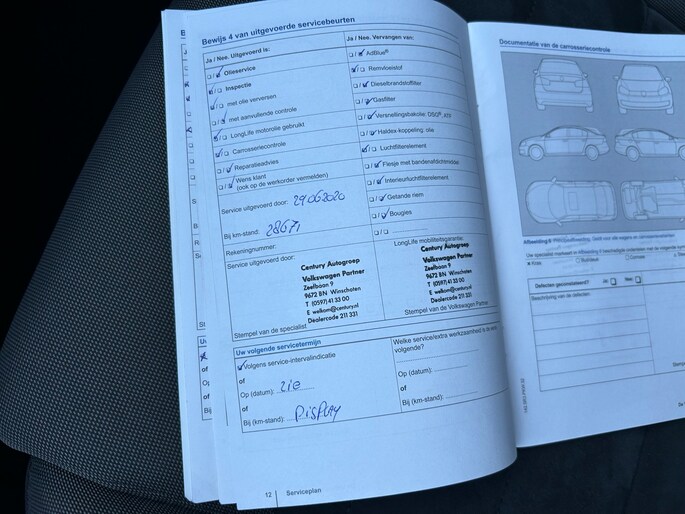 Bewijs 4 van uitgevoerde servicebeurten
Ja / Nee. Uitgevoerd is:
Olieservice
Inspectie
met olie verversen
met aanvullende controle
LongLife motorolie gebruikt
Carrosseriecontrole
Reparatieadvies
Wens klant
(ook op de werkorder vermelden)
Service uitgevoerd door: 29062020
Bij km-stand: 28671
Rekeningnummer:
Service uitgevoerd door:
Century Autogroep
Volkswagen Partner
Zeefbaan 9
9672 BN Winschoten
T (0597) 41 33 00
E welkom@century.nl
Dealercode 211 331
Stempel van de specialist
Ja / Nee. Vervangen van:
AdBlue®
Remvloeistof
Dieselbrandstoffilter
Gasfilter
Versnellingsbakolie: DSG®, ATF
Haldex-koppeling: olie
Luchtfilterelement
Flesje met bandenafdichtmiddel
Interieurluchtfilterelement
Getande riem
Bougies
LongLife mobiliteitsgarantie:
Century Autogroep
Volkswagen Partner
Zeefbaan 9
9672 BN Winschoten
T (0597) 41 33 00
E welkom@century.nl
Dealercode 211 331
Stempel van de Volkswagen Partner
Uw volgende servicetermijn
Volgens service-intervalindicatie
of
Op (datum): zie
of
Bij (km-stand): DISPLAY
Welke service/extra werkzaamheid is de
volgende?
Op (datum):
of
Bij (km-stand):
12 Serviceplan
Documentatie van de carrosseriecontrole